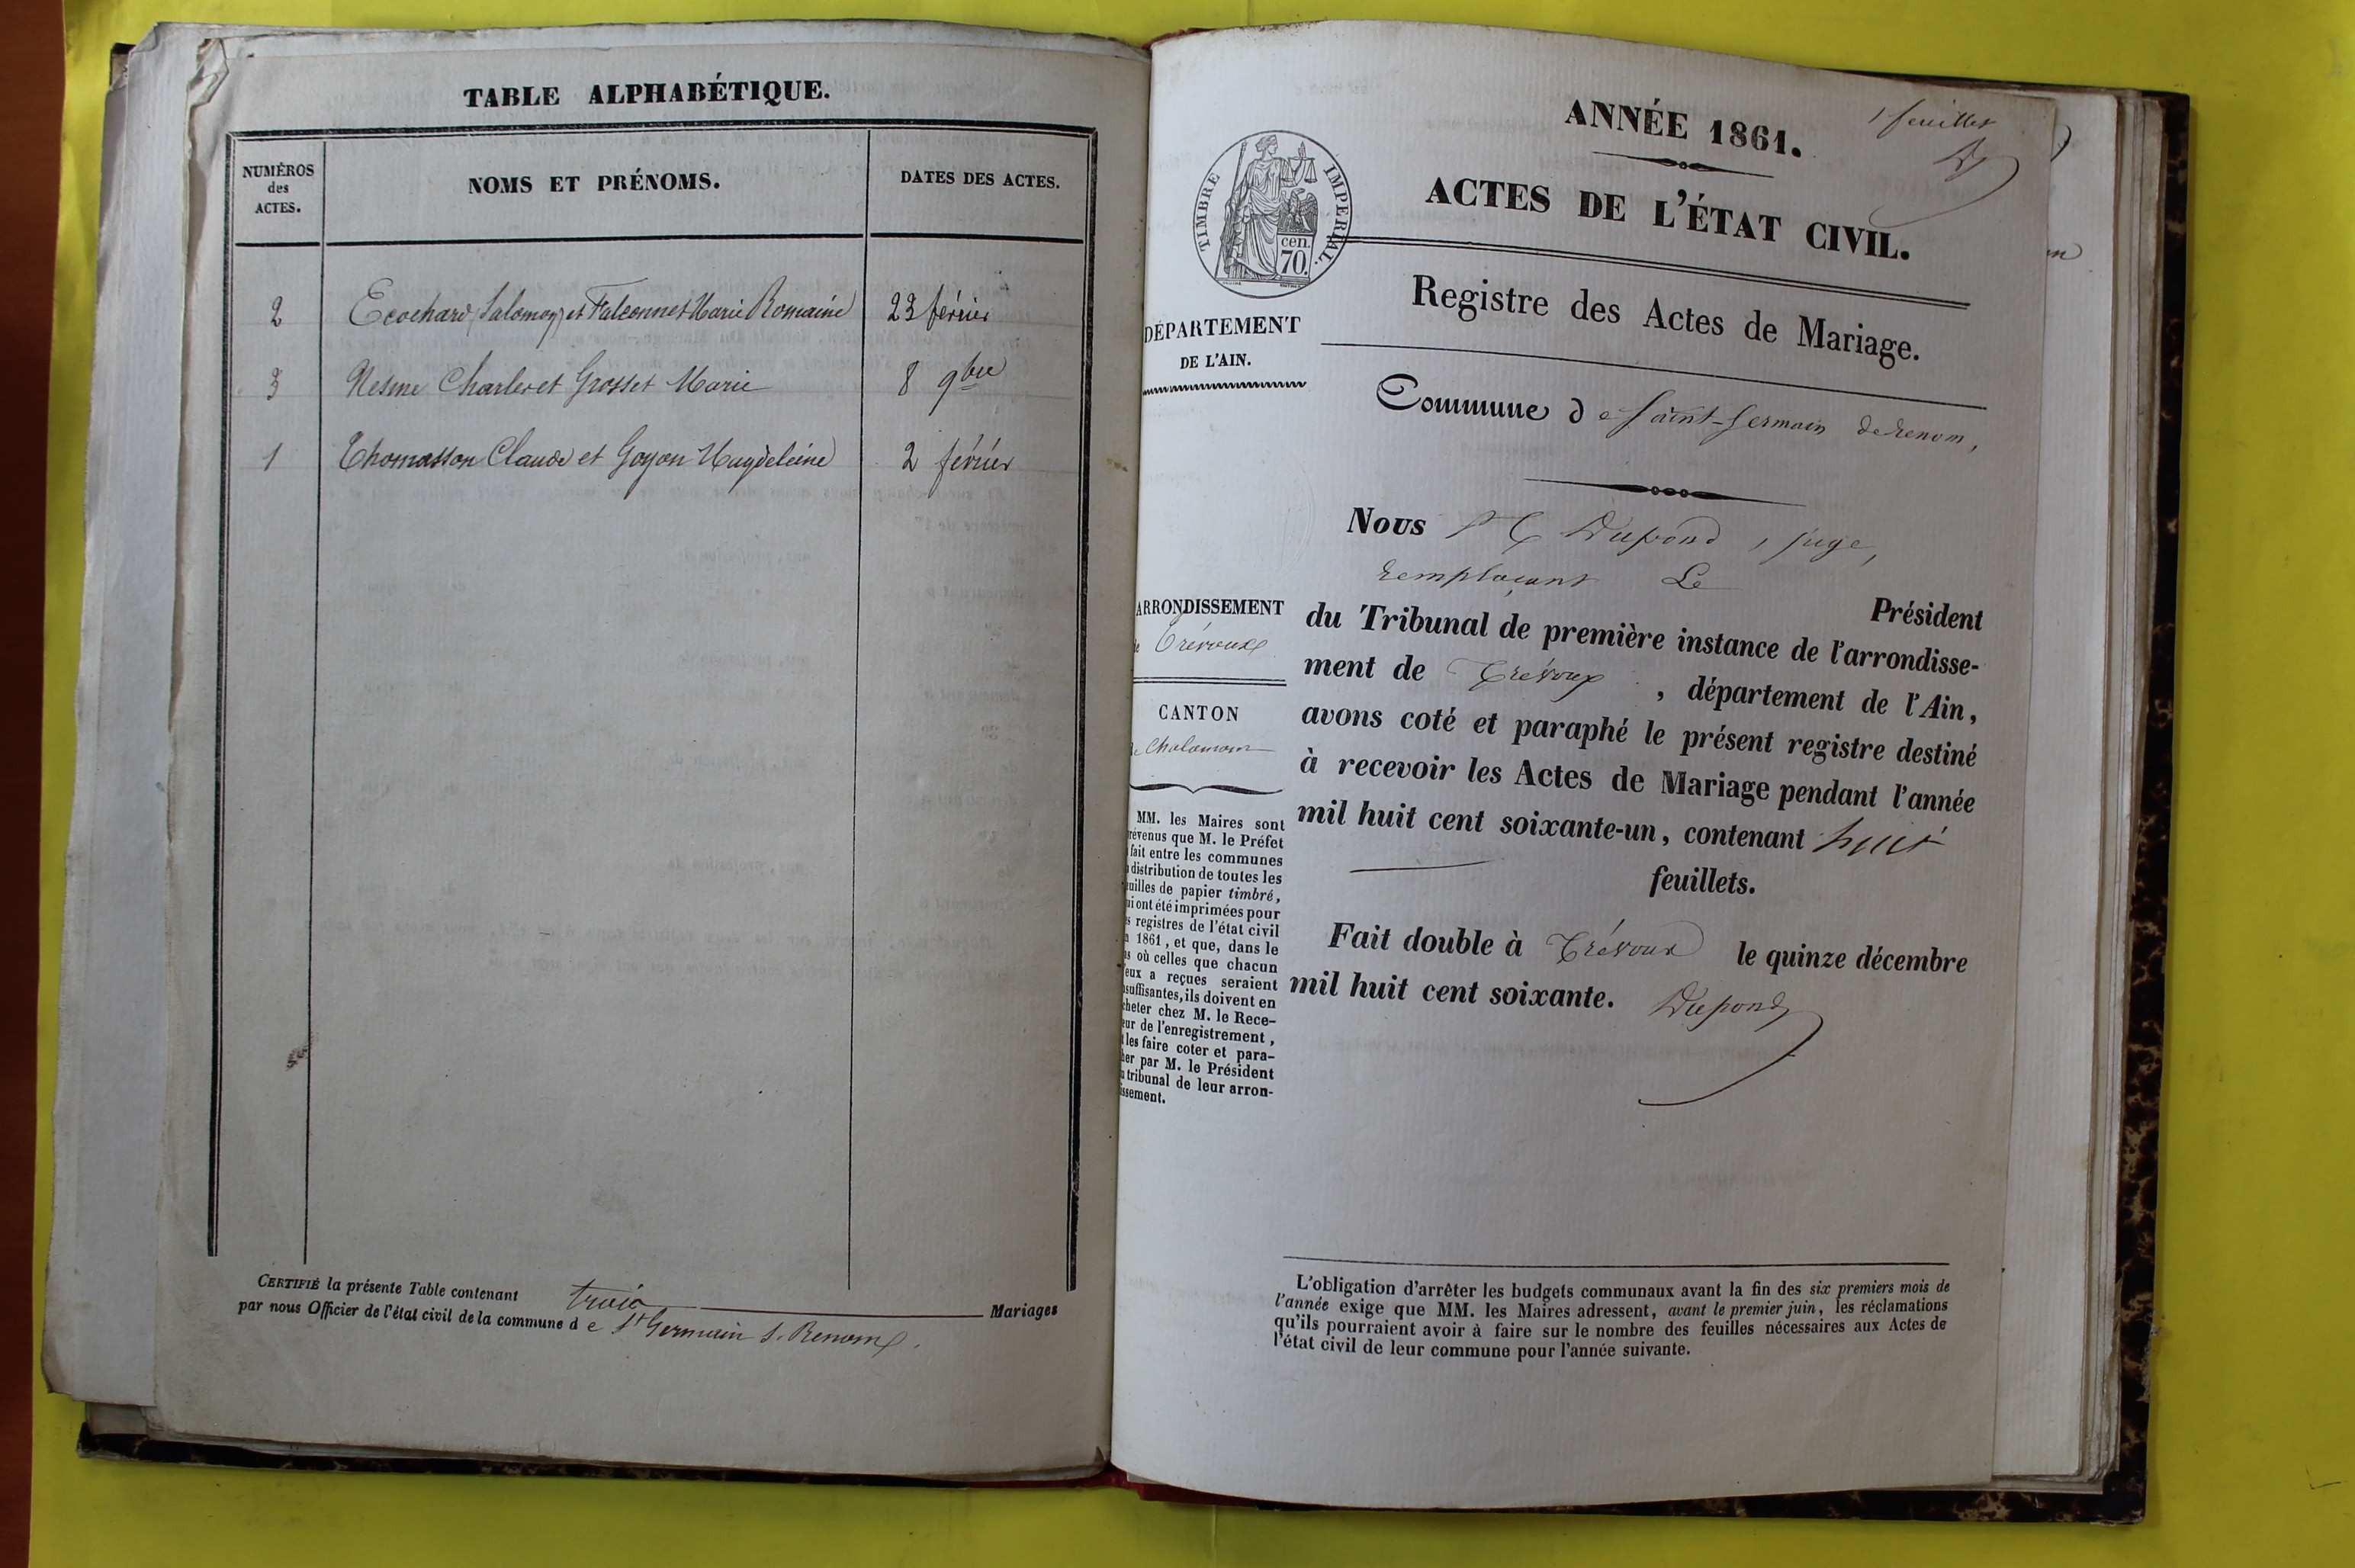 TABLE ALPHABÉTIQUE.
NUMÉROS
des
ACTES.
NOMS ET PRÉNOMS.
DATES DES ACTES.
2 Ecochard Salomon et Falconnet Marie Romaine 23 février
3 Nesme Charles et Grosset Marie 8 9bre
1 Thomasson Claude et Goyon Magdeleine 2 février
CERTIFIÉ la présente Table contenant trois Mariages
par nous Officier de l'état civil de la commune d e St Germain s. Renom.
1 feuillet
ANNÉE 1861.
ACTES DE L'ÉTAT CIVIL.
TIMBRE IMPERIAL.
cen.
70.
Registre des Actes de Mariage.
DÉPARTEMENT
DE L'AIN.
Commune d e Saint-Germain de renom,
Nous Dupond, juge,
remplaçant Le
Président
du Tribunal de première instance de l'arrondisse-
ment de Trévoux, département de l'Ain,
avons coté et paraphé le présent registre destiné
à recevoir les Actes de Mariage pendant l'année
mil huit cent soixante-un, contenant huit
feuillets.
Fait double à Trévoux le quinze décembre
mil huit cent soixante. Dupond
ARRONDISSEMENT
e Trévoux
CANTON
de Chalamont
MM. les Maires sont
révenus que M. le Préfet
fait entre les communes
distribution de toutes les
uilles de papier timbré,
ui ont été imprimées pour
s registres de l'état civil
n 1861, et que, dans le
as où celles que chacun
'eux a reçues seraient
nsuffisantes, ils doivent en
cheter chez M. le Rece-
eur de l'enregistrement,
les faire coter et para-
her par M. le Président
u tribunal de leur arron-
issement.
L'obligation d'arrêter les budgets communaux avant la fin des six premiers mois de
l'année exige que MM. les Maires adressent, avant le premier juin, les réclamations
qu'ils pourraient avoir à faire sur le nombre des feuilles nécessaires aux Actes de
l'état civil de leur commune pour l'année suivante.